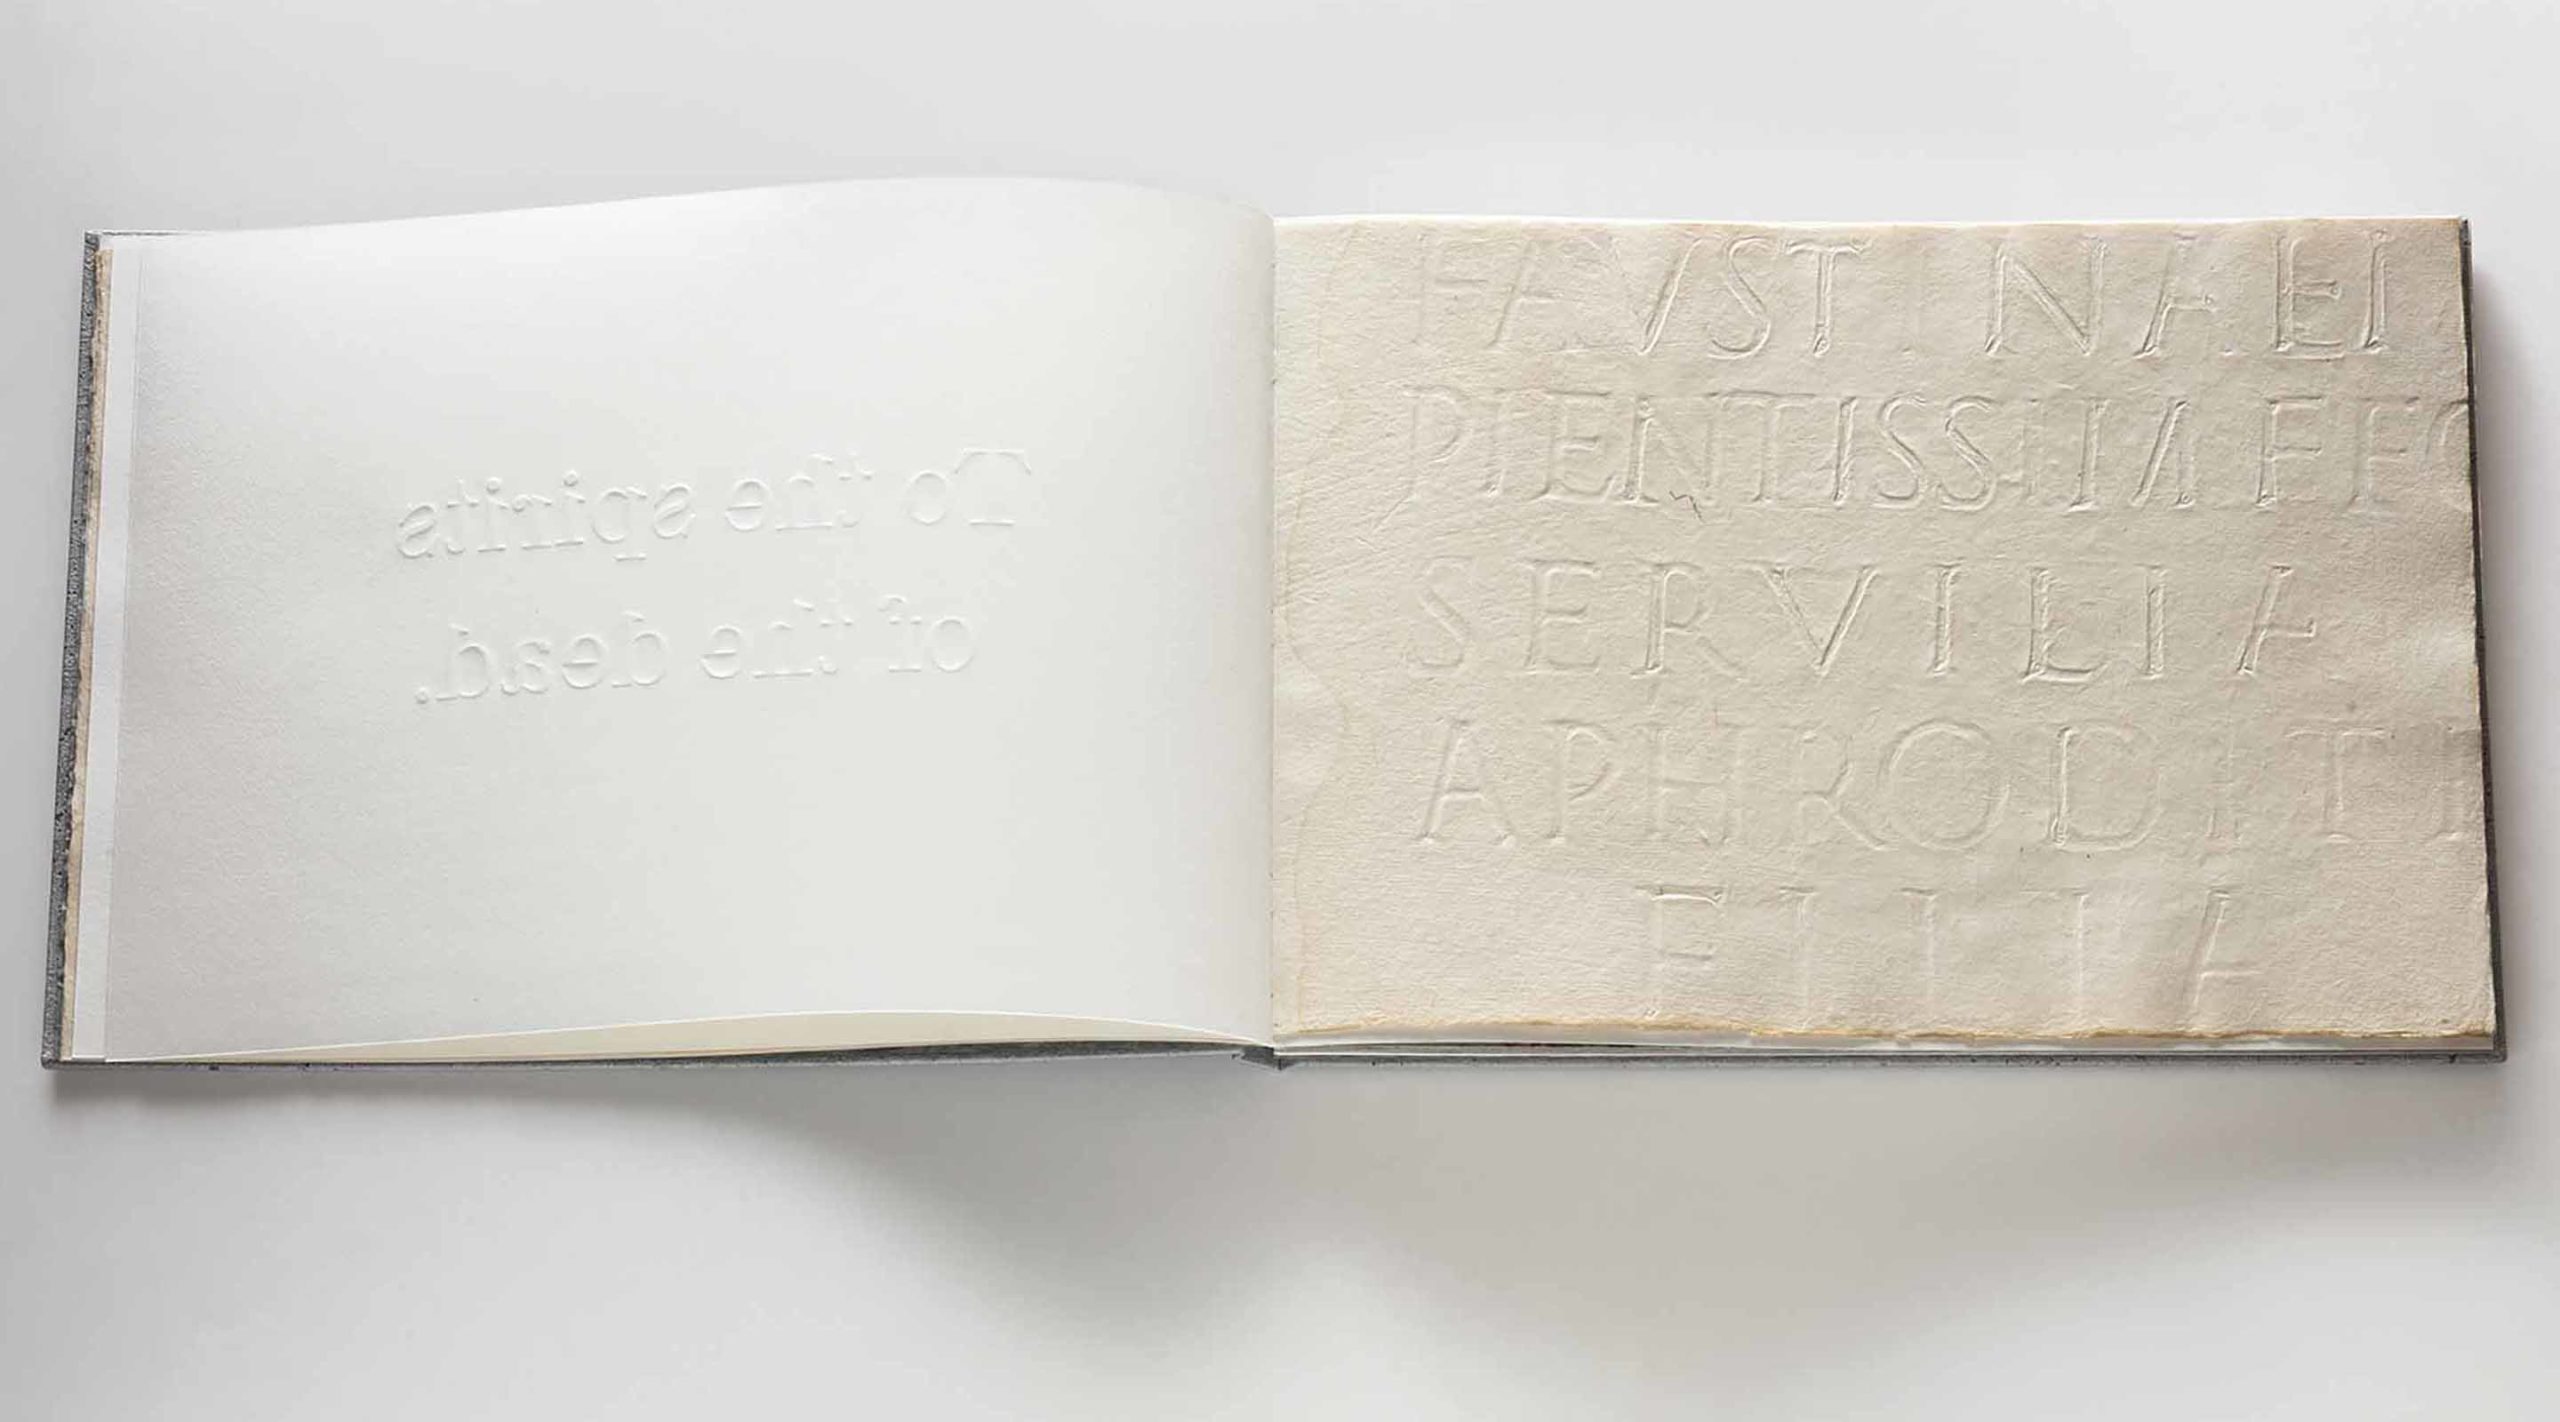 To the spirits
of the dead.
FAVSTINAEI
PIENTISSIMEF
SERVILIA
APHRODIT
FILIA